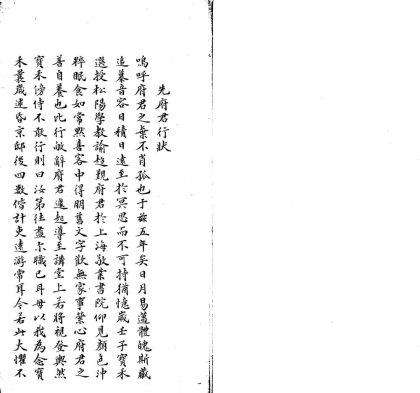 先府君行狀
嗚呼府君之棄不肖孤也于茲五年矣日月易邁體魄斯藏
追慕音容日積日遠至於冥思而不可持猶憶歲壬子寶禾
選授松陽學教諭趨覲府君於上海敬業書院仰見顏色沖
粹眠食如常黙喜容中得朋舊文字歡無家事縈心府君之
善自養也比行敬辭府君遽起導至講堂上若將視登輿然
寶禾傍侍不敢行則曰汝第往盡尔職已耳毋以我為念寶
禾曩歲迷昏京邸後四數偕計吏遠游常耳今若此大懼不